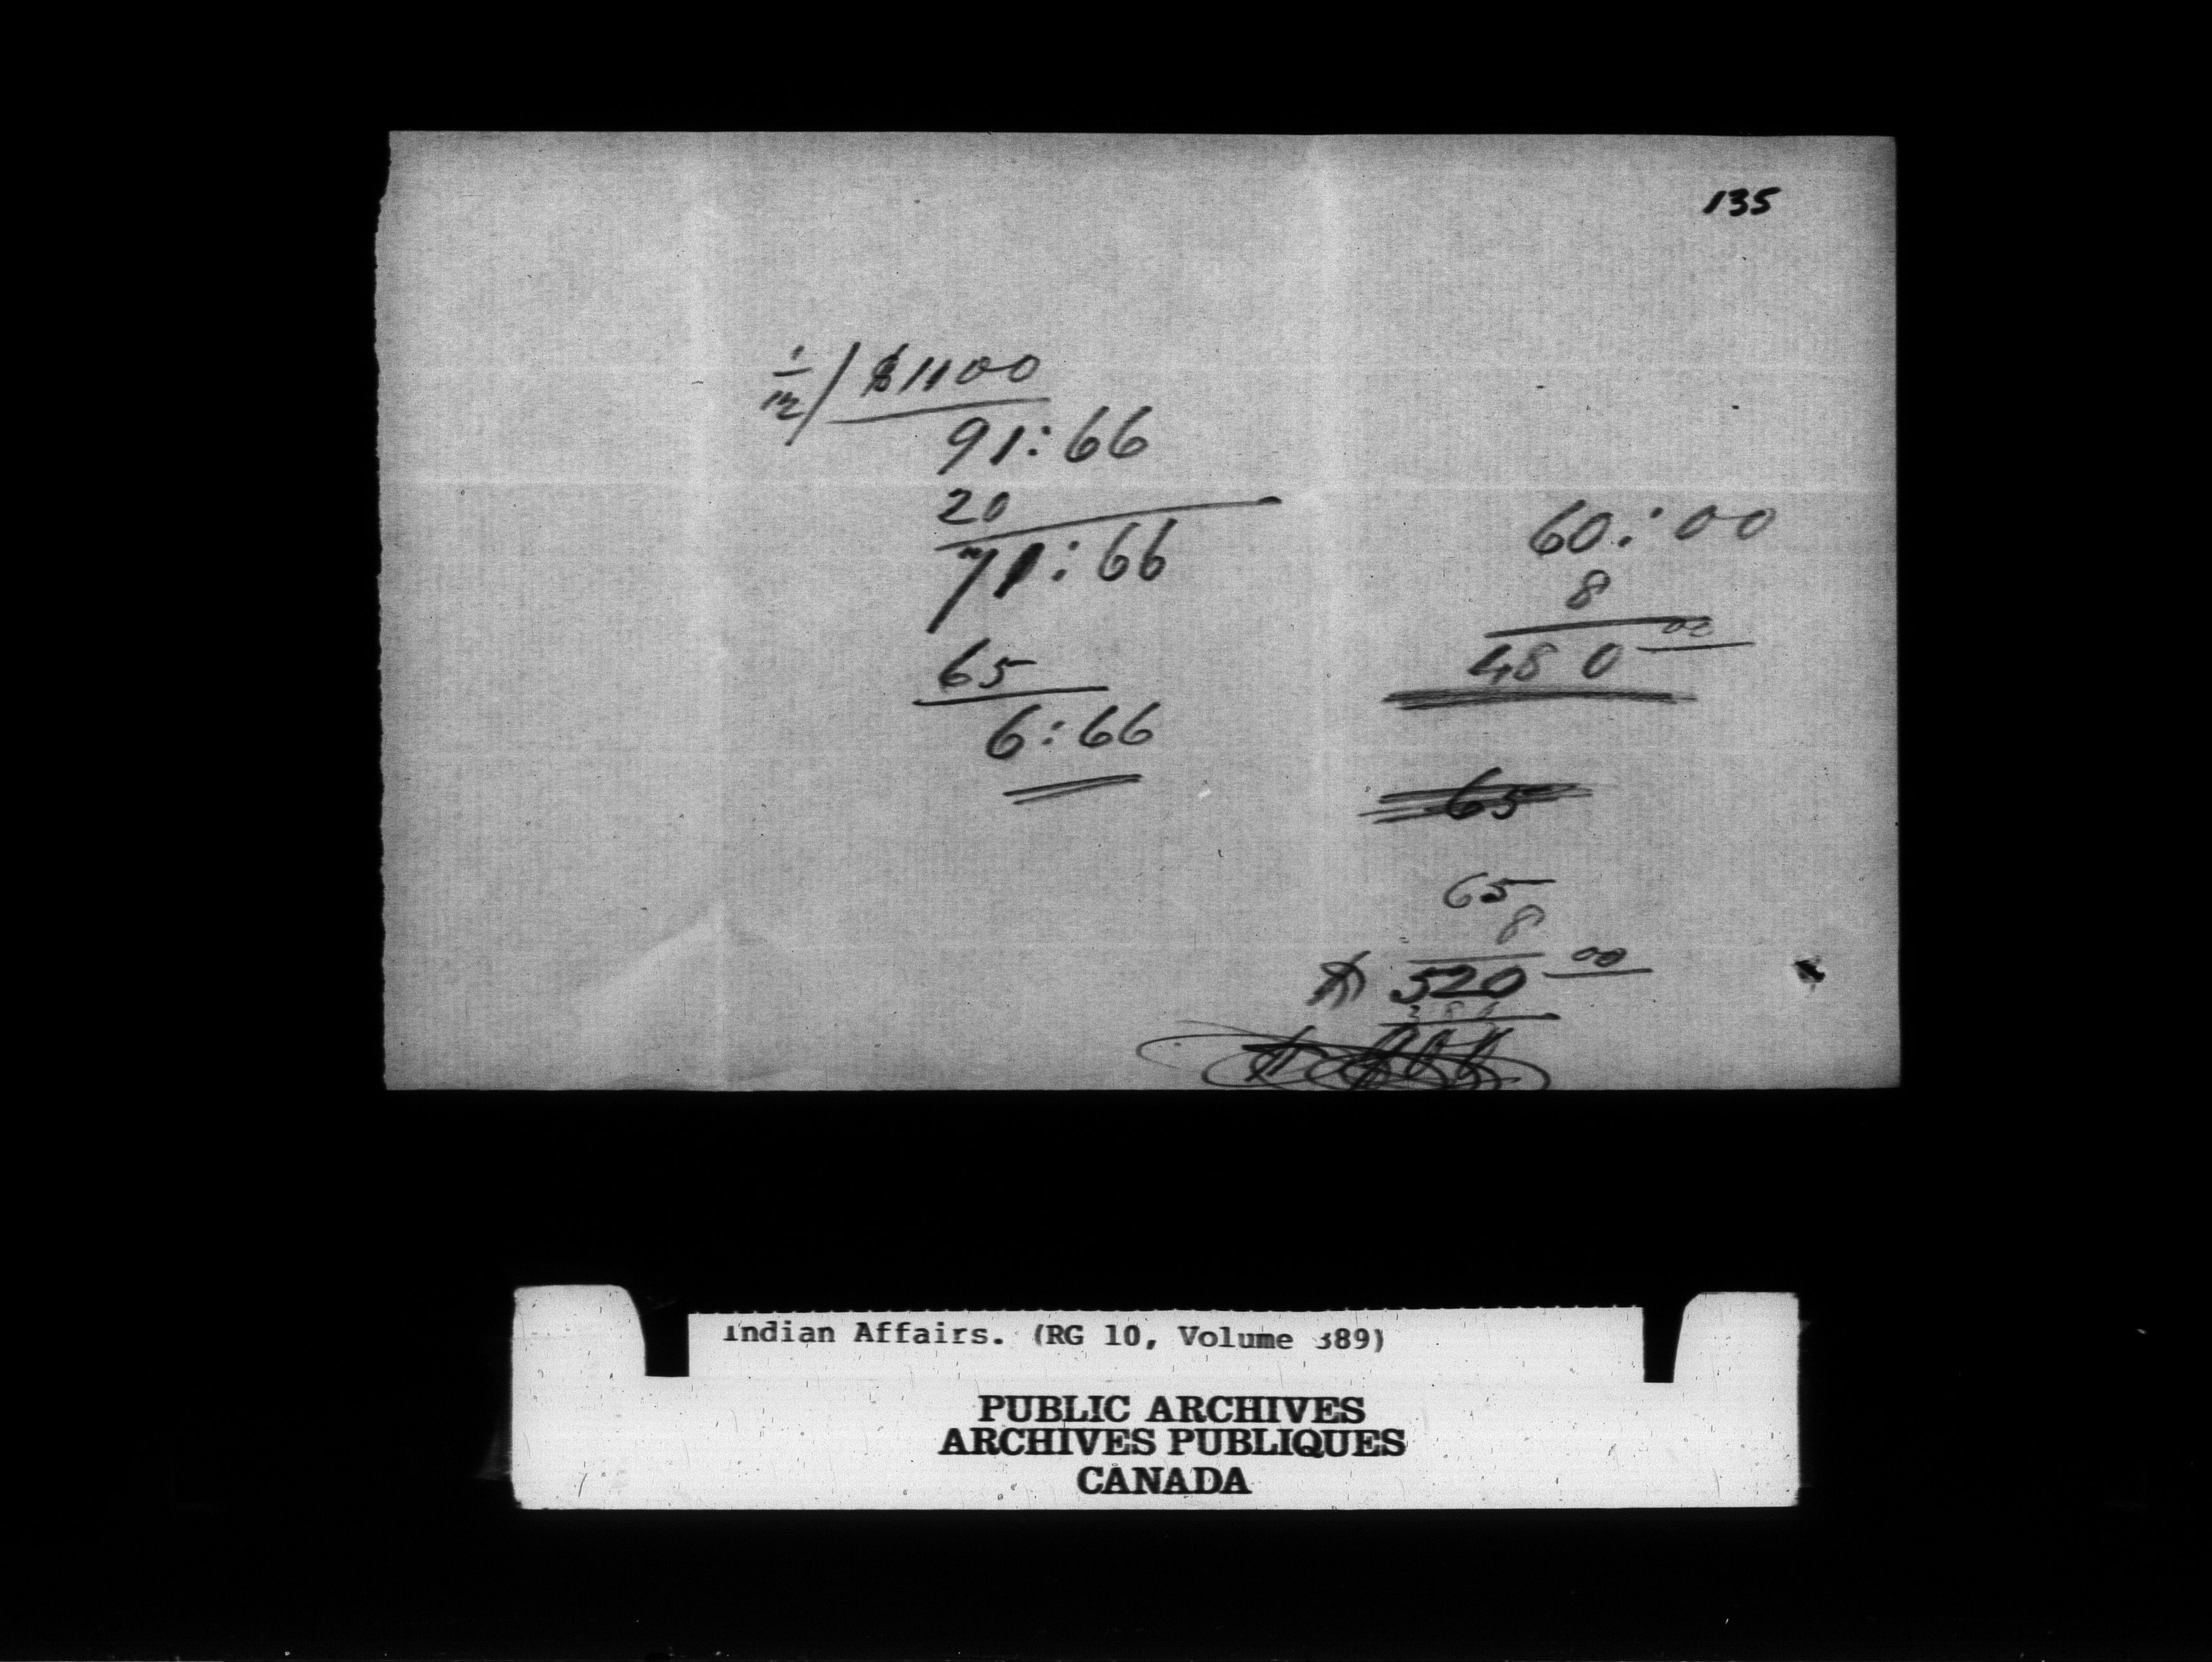 135
1/12 / $1100
91:66
20
71:66
65
6:66
60:00
8
480 00
65
65
8
$ 520 00
Indian Affairs. (RG 10, Volume 389)
PUBLIC ARCHIVES
ARCHIVES PUBLIQUES
CANADA